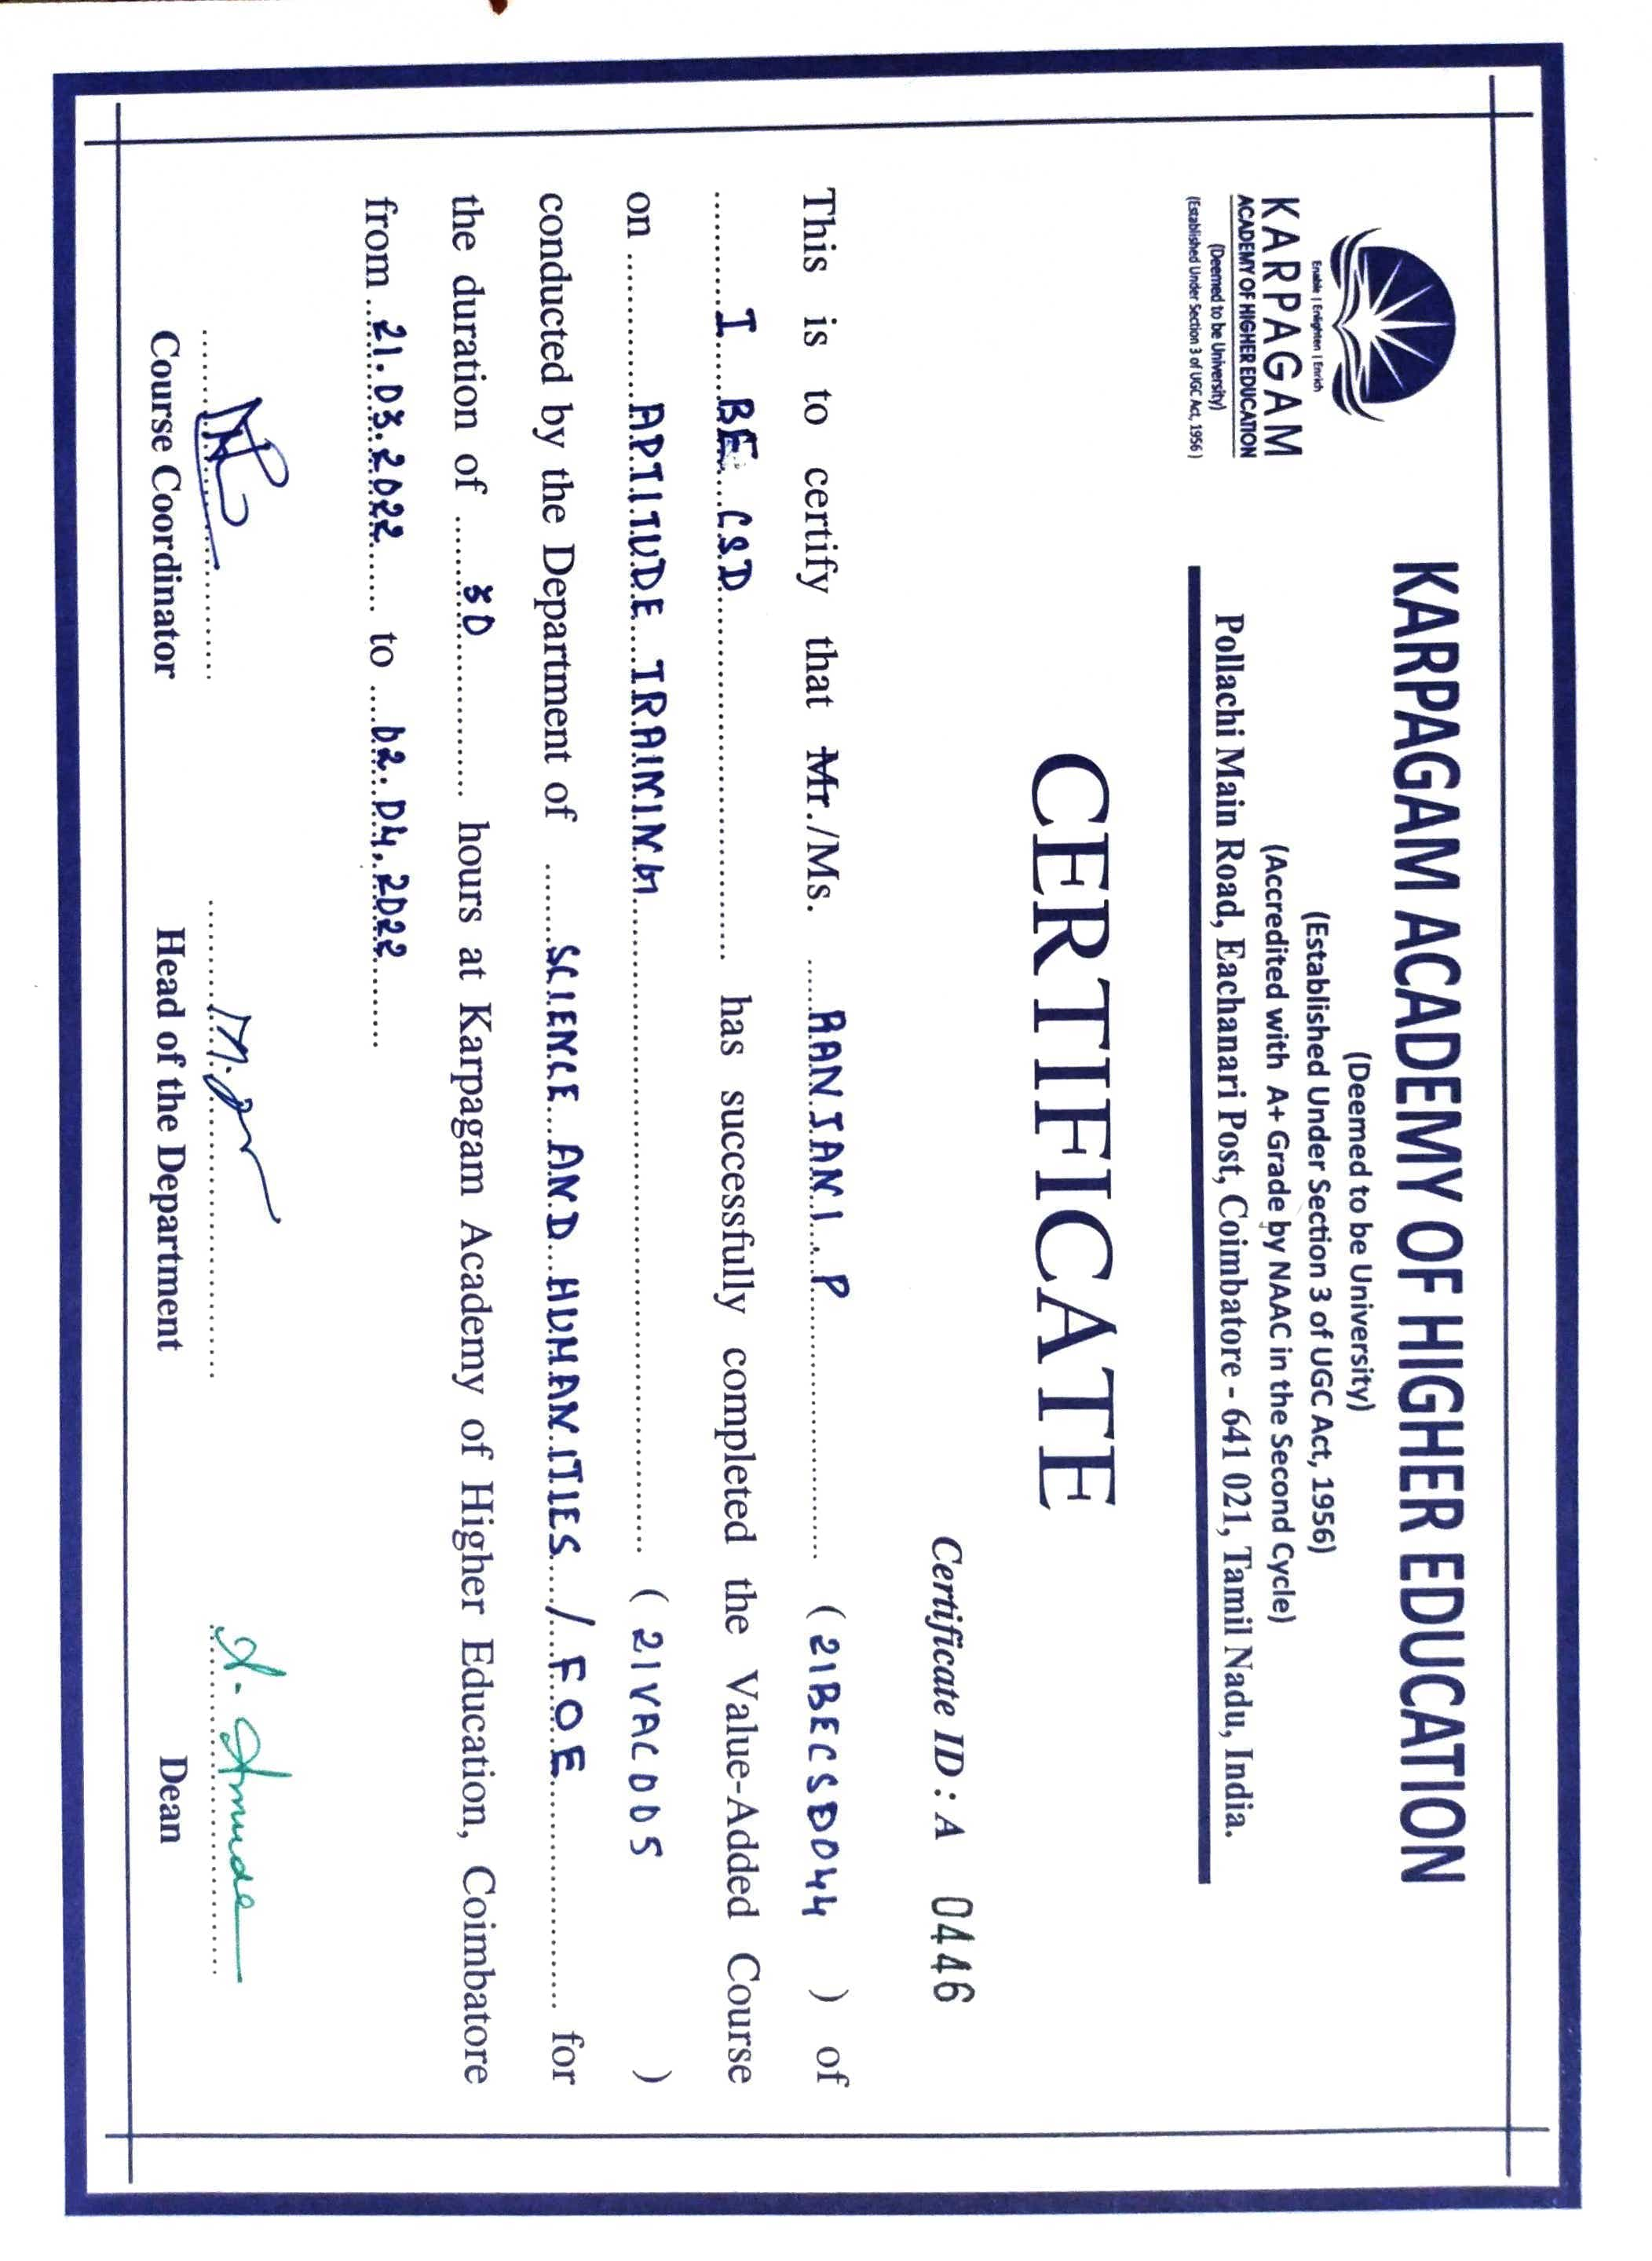 Enable | Enlighten | Enrich
KARPAGAM
ACADEMY OF HIGHER EDUCATION
(Deemed to be University)
(Established Under Section 3 of UGC Act, 1956)
KARPAGAM ACADEMY OF HIGHER EDUCATION
(Deemed to be University)
(Established Under Section 3 of UGC Act, 1956)
(Accredited with A+ Grade by NAAC in the Second Cycle)
Pollachi Main Road, Eachanari Post, Coimbatore - 641 021, Tamil Nadu, India.
CERTIFICATE
Certificate ID : A 0446
This is to certify that Mr./Ms. RANJANI P (21BECSD044) of
I BE CSD has successfully completed the Value-Added Course
on APTITUDE TRAINING (21VAC005)
conducted by the Department of SCIENCE AND HUMANITIES / FOE for
the duration of 30 hours at Karpagam Academy of Higher Education, Coimbatore
from 21.03.2022 to 02.04.2022
Course Coordinator Head of the Department Dean